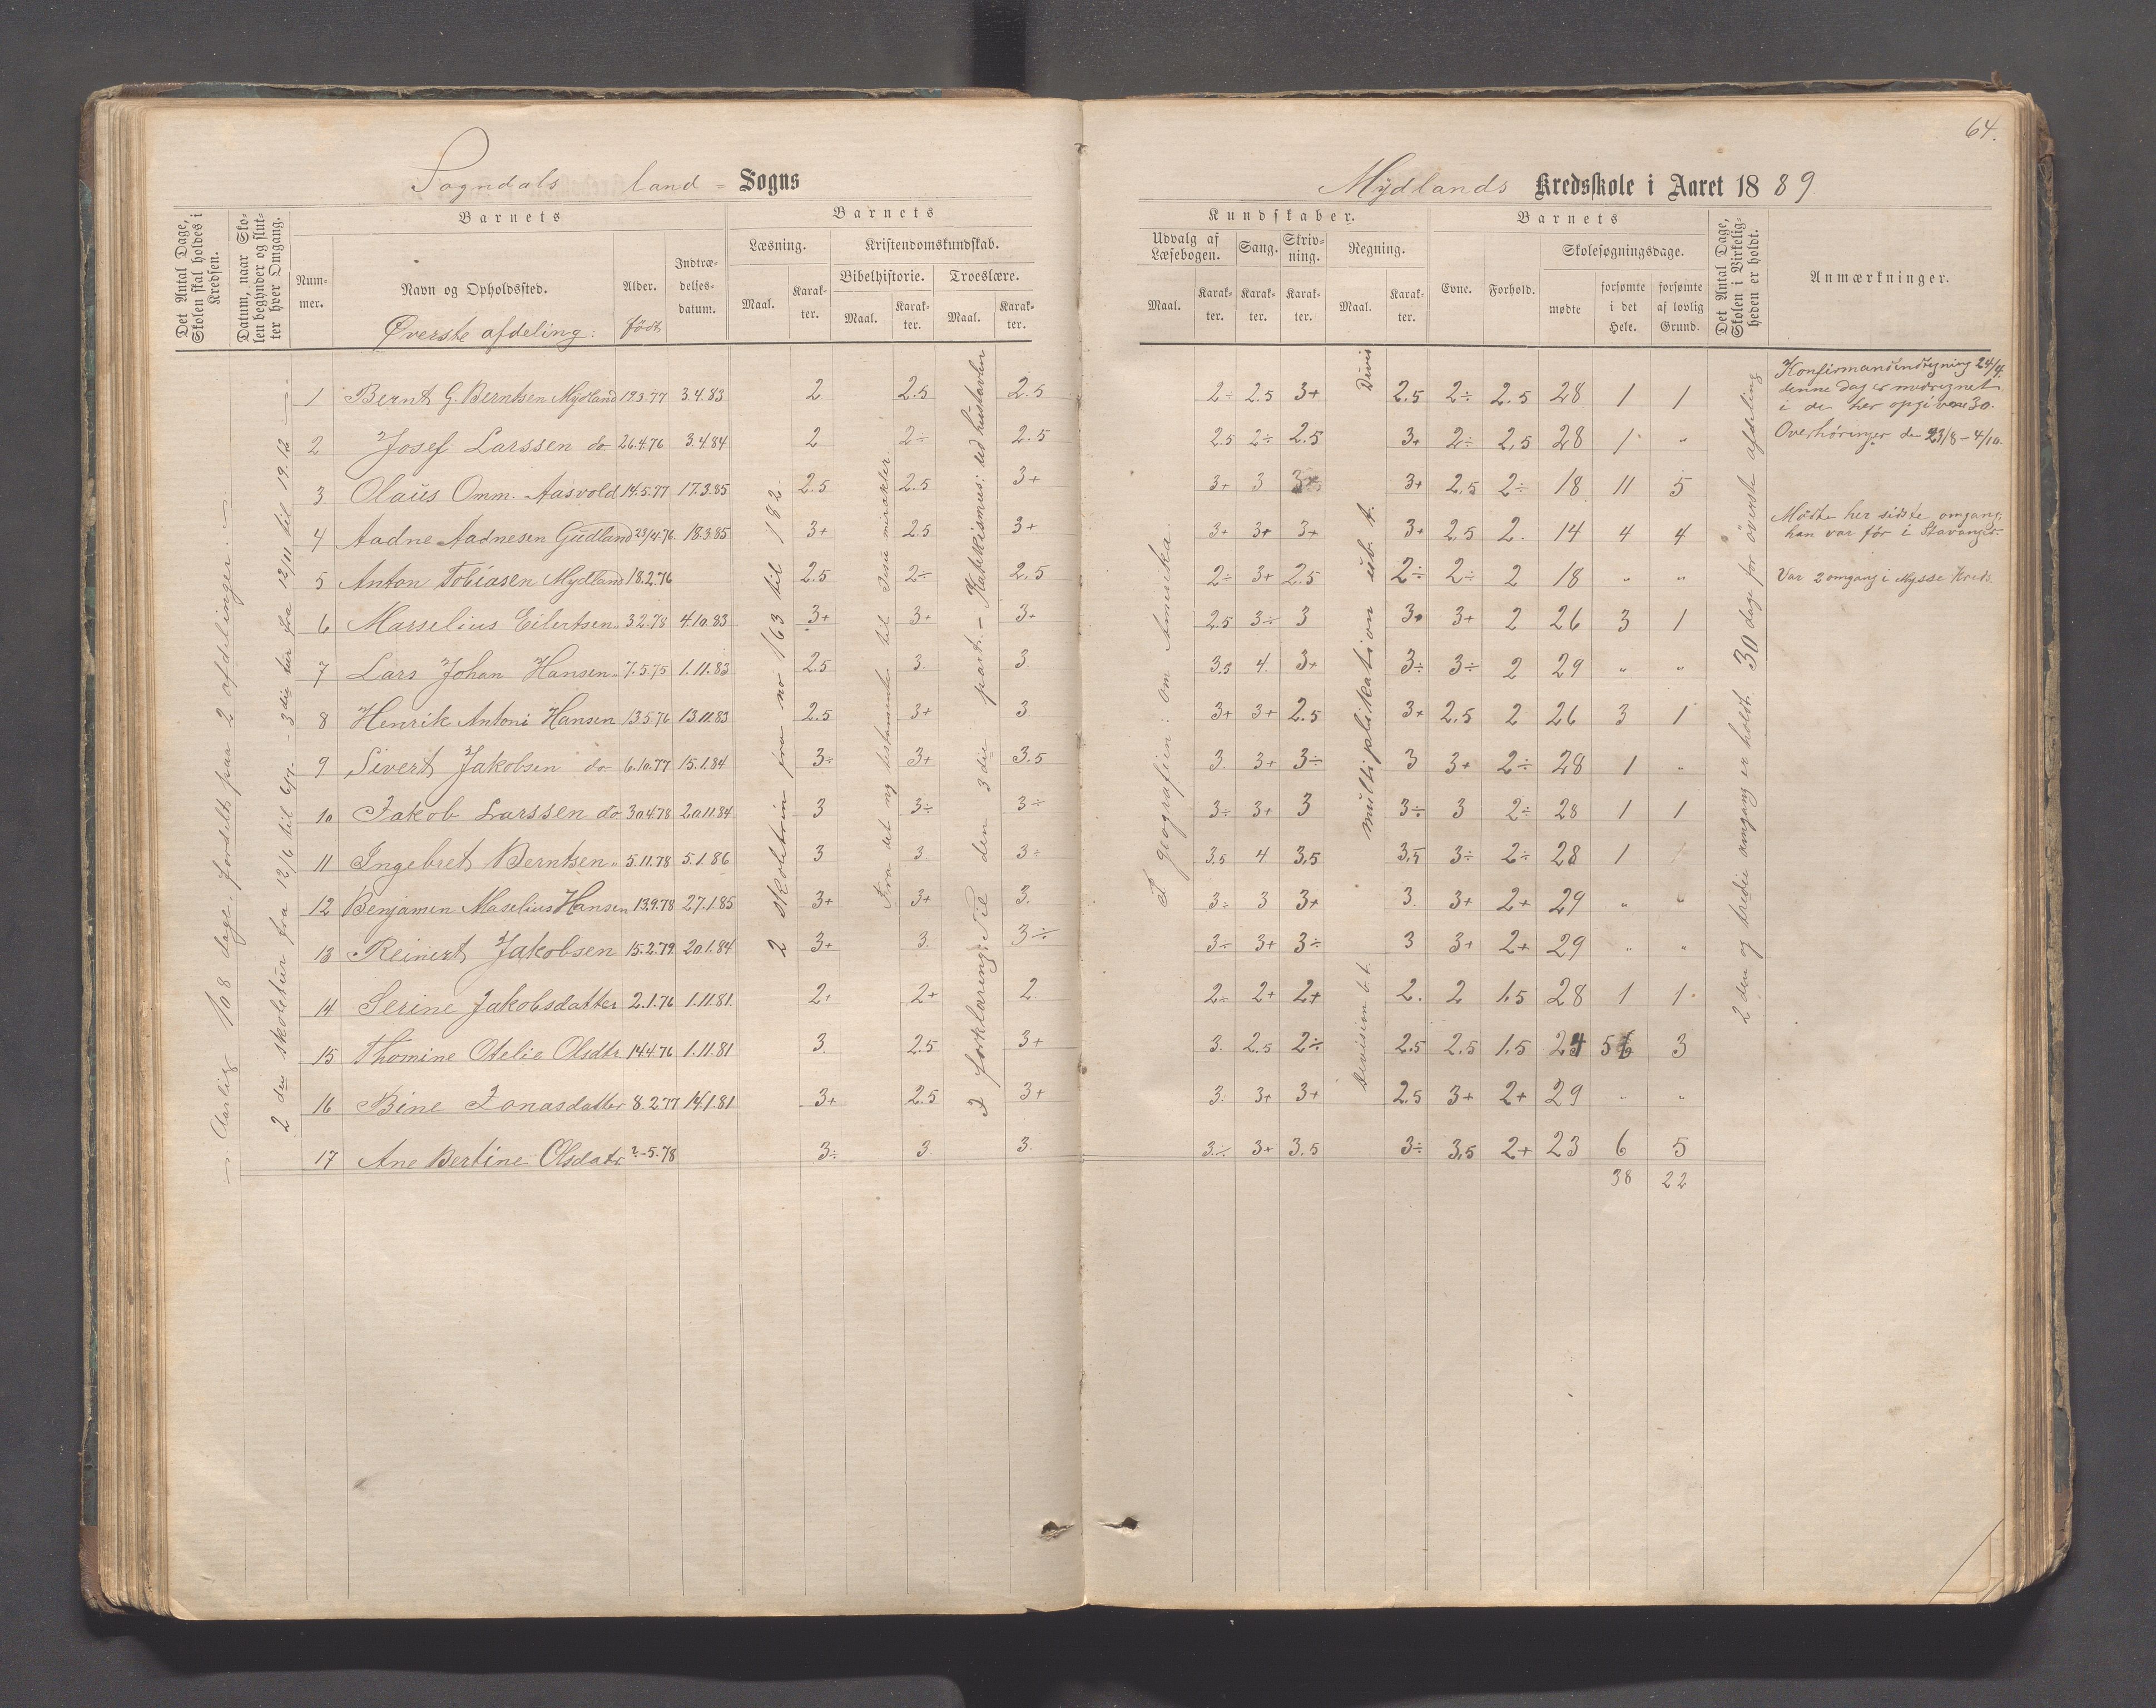 64.
Sogndals land = Sogns
Mydlands Kredsskole i Aaret 1889.
Det Antal Dage, Skolen skal holdes i Kredsen.
Datum, naar Skolen begynder og slutter hver Omgang.
Barnets
Nummer.
Navn og Opholdssted.
Øverste afdeling:
Alder.
født
Indtrædelsesdatum.
Barnets
Læsning.
Kristendomskundskab.
Bibelhistorie.
Troeslære.
Maal.
Karakter.
Maal.
Karakter.
Maal.
Karakter.
Kundskaber.
Udvalg af Læsebogen.
Sang.
Skrivning.
Regning.
Maal.
Karakter.
Karakter.
Karakter.
Maal.
Karakter.
Barnets
Evne.
Forhold.
Skolesøgningsdage.
mødte
forsømte i det Hele.
forsømte af lovlig Grund.
Det Antal Dage, Skolen i Virkeligheden er holdt.
Anmærkninger.
Aarlig 108 dage, fordelt paa 2 afdelinger.
2den skoletur fra 12/6 til 6/7. - 3die tur fra 12/11 til 19.12
2 skoletrin fra no 163 til 182.
Fra det ny testamente til Jesu mirakler
I forklaring: Til den 3die part. - Katekismus: ud hustavlen
I geografien: om Amerika.
multiplikation ub. t.
Divis
Division b. t.
2den og tredie omgang er holdt 30 dage for øverste afdeling
1 Bernt G. Berntsen Mydland 19.3.77 3.4.83 2 2.5 2.5 2÷ 2.5 3+ 2.5 2÷ 2.5 28 1 1
2 Josef Larssen do 26.4.76 3.4.84 2 2÷ 2.5 2.5 2÷ 2.5 3+ 2÷ 2.5 28 1 "
3 Olaus Omm. Aasvold 14.5.77 17.3.85 2.5 2.5 3+ 3+ 3 3+ 3+ 2.5 2÷ 18 11 5
4 Aadne Aadnesen Gudland 23/4.76 18.3.85 3+ 2.5 3+ 3+ 3+ 3+ 3+ 2.5 2. 14 4 4
5 Anton Tobiasen Mydland 18.2.76 2.5 2÷ 2.5 2÷ 3+ 2.5 2÷ 2÷ 2 18 " "
6 Marselius Eilertsen " 3.2.78 4.10.83 3+ 3+ 3+ 2.5 3÷ 3 3+ 3+ 2 26 3 1
7 Lars Johan Hansen " 7.5.75 1.11.83 2.5 3. 3 3.5 4. 3+ 3÷ 3÷ 2 29 " "
8 Henrik Antoni Hansen 13.5.76 13.11.83 2.5 3+ 3 3+ 3+ 2.5 3+ 2.5 2 26 3 1
9 Sivert Jakobsen do 6.10.77 15.1.84 3÷ 3+ 3.5 3. 3+ 3÷ 3 3+ 2÷ 28 1 "
10 Jakob Larssen do 30.4.78 20.11.84 3 3÷ 3÷ 3÷ 3+ 3 3÷ 3 2÷ 28 1 1
11 Ingebret Berntsen " 5.11.78 5.1.86 3 3. 3÷ 3.5 4. 3.5 3.5 3÷ 2÷ 28 1
12 Benjamin Maselius Hansen 13.9.78 27.1.85 3+ 3+ 3. 3÷ 3 3+ 3. 3+ 2+ 29 " "
13 Reinert Jakobsen 15.2.79 20.1.84 3+ 3. 3÷ 3÷ 3+ 3÷ 3 3+ 2+ 29 " "
14 Serine Jakobsdatter 2.1.76 1.11.81. 2+ 2+ 2. 2÷ 2+ 2+ 2. 2 1.5 28 1 1
15 Thomine Otelie Olsdtr 14.4.76 1.11.81 3. 2.5 3+ 3. 2.5 2÷ 2.5 2.5 1.5 24 5 3
16 Bine Jonasdatter 8.2.77 14.1.81 3+ 2.5 3+ 3. 3+ 3+ 2.5 3+ 2+ 29 " "
17 Ane Bertine Olsdatr ?-5.78 3÷ 3. 3. 3÷ 3+ 3.5 3÷ 3.5 2+ 23 6 5
38 22
Konfirmandindtegning 24/4.
denne dag er medregnet
i de her opgivene 30.
Overhøringer den 23/8 - 4/10.
Mødte her sidste omgang,
han var før i Stavanger.
Var 2 omgang i Mysse Kreds.